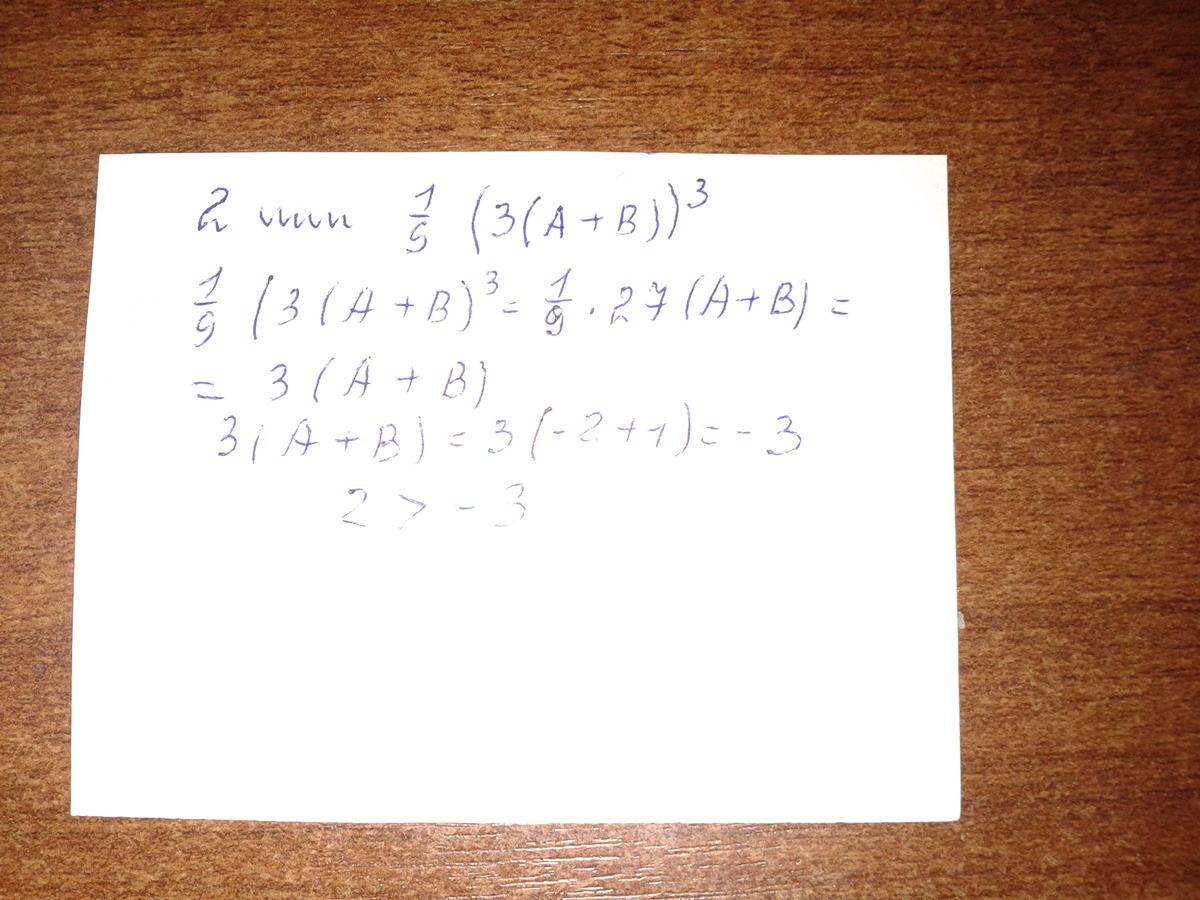 2 или 1/9 (3(A+B))³
1/9 (3(A+B)³ = 1/9 · 27(A+B) =
= 3(A+B)
3(A+B) = 3(-2+1) = -3
2 > -3